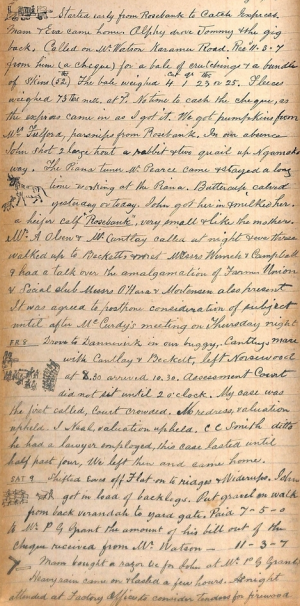 Started early from Rosebank to Catch Express.
Mam & Eva came home. Alphy drove Tommy & the gig
back. Called on Mr Watson Karamu Road. Rec 11-3-7
from him (a cheque) for a bale of crutchings & a bundle
of skins The bale weighed 4 1 23 or 25. Fleeces
weighed No time to cash the cheque, as
the express came in as I got it. We got pumpkins from
Mrs Telford, parsnips from Rosebank. In our absence
John shot 2 large trout a rabbit & two quail up
way. The Piano tuner Mr Pearce came & stayed a long
time working at the Piano. Buttercup calved
yesterday or today. John got her in & milked her.
a heifer calf Rosebank, very small & like the mother.
Mr A Olsen & Mr Cantlay called at night & we three
walked up to Becketts & met Messrs & Campbell
& had a talk over the amalgamation of Farmers Union
& Social Club Messrs O'Hara & Mortensen also present
It was agreed to postpone consideration of subject
until after Mr Curdy's meeting on Thursday night
FRI 8 Drove to Dannevirk in our buggy, Cantlay's mare
with Cantlay & Beckett, left Norsewood
at 8.30 arrived 10.30. Assessment Court
did not sit until 2 o'clock. My case was
the first called, Court crowded, No redress, valuation
upheld. I Neal, valuation upheld, C C Smith ditto
he had a lawyer employed, this case lasted until
half past four, We left then and came home.
SAT 9 Shifted ewes off Flat on to &
got in load of backlogs. Put gravel on walk
from back verandah to yard gate. Paid 7-5-0
to Mr P G Grant the amount of his bill out of the
cheque received from Mr Watson — 11-3-7
Mam bought a razor for John at Mr P G Grants
Heavy rain came on & lasted a few hours. At night
attended at Factory Office to consider tenders for firewood